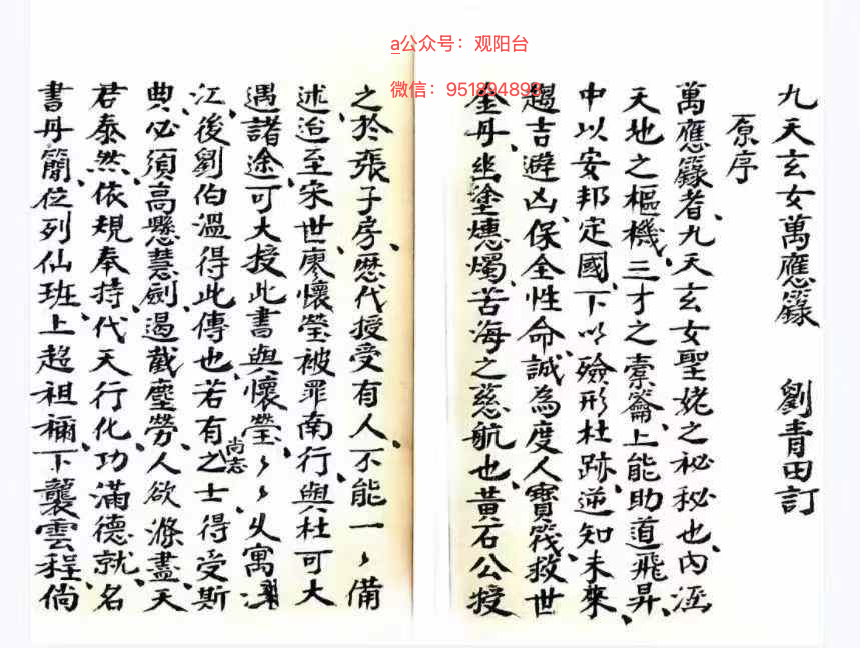 a公众号：观阳台
微信：951894893
九天玄女萬應籙　劉青田訂
原序
萬應籙者、九天玄女聖姥之秘秘也、內涵
天地之樞機、三才之橐籥、上能助道飛昇、
中以安邦定國、下以殮形杜跡、逆知未來、
趨吉避凶、保全性命、誠為度人寶筏、救世
金丹、幽塗燻燭、苦海之慈航也、黃石公授
之於張子房、歷代授受有人、不能一〻備
述、迨至宋世、廖懷瑩被罪南行、與杜可大
遇諸途、可大授此書與懷瑩、〻〻久寓
江、後劉伯溫得此傳也、若有尚志之士得受斯
典、必須高懸慧劍、遏截塵勞、人欲滌盡、天
君泰然、依規奉持、代天行化、功滿德就、名
書丹簡、位列仙班、上超祖禰、下襲雲程、倘